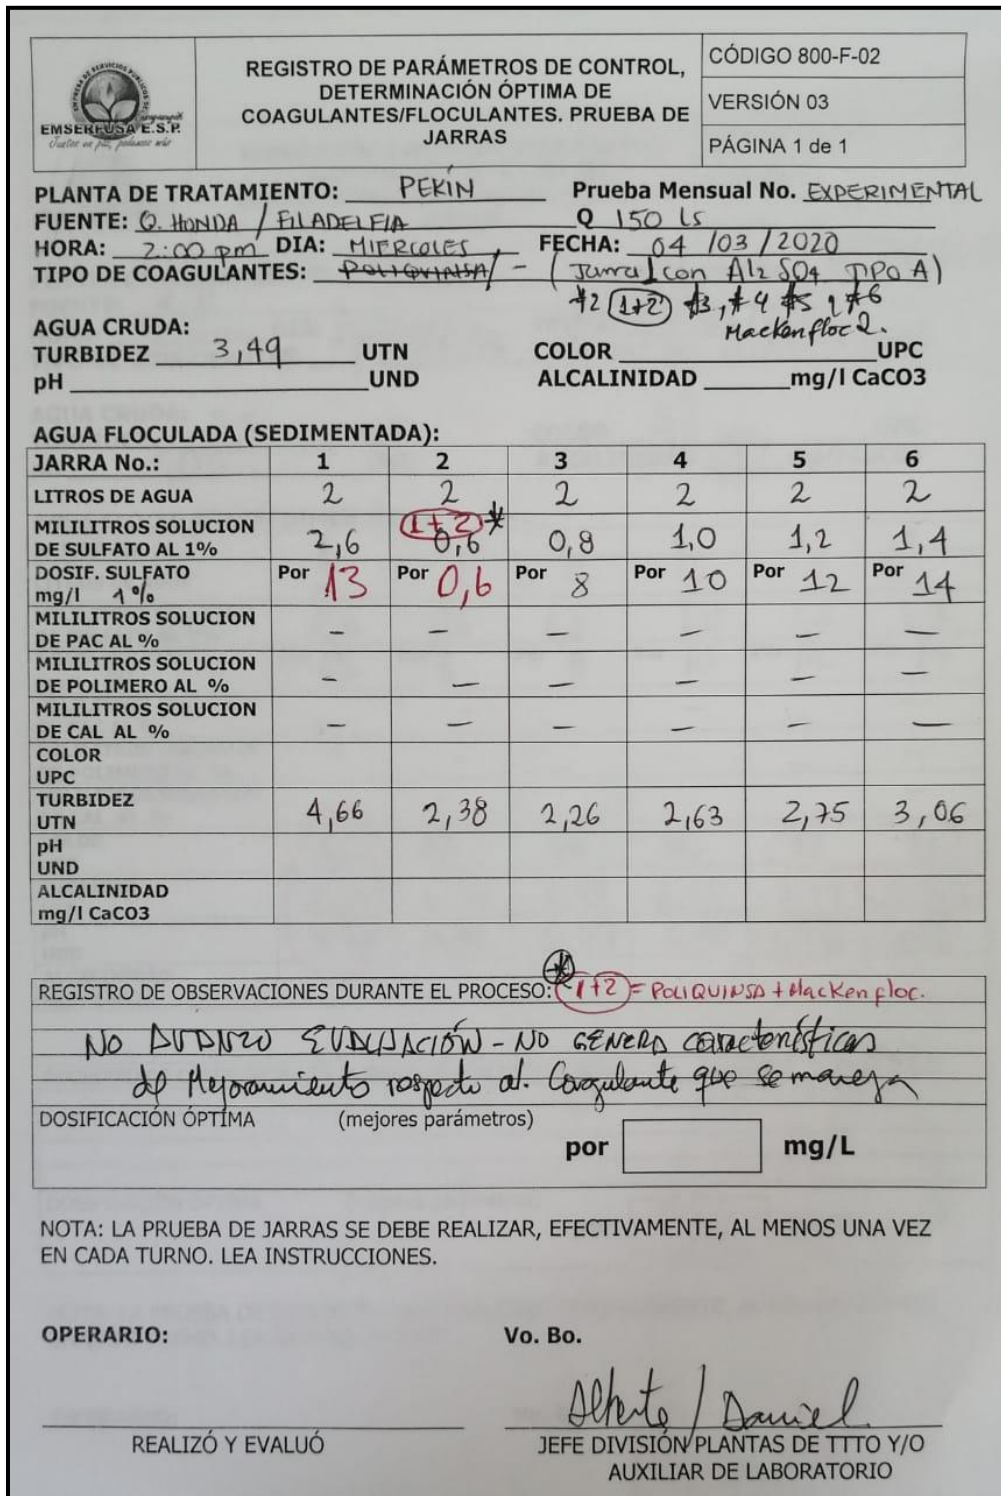 EMPRESA DE SERVICIOS PÚBLICOS DE
Fusagasugá
EMSERFUSA E.S.P.
Juntos en pie, podemos más
REGISTRO DE PARÁMETROS DE CONTROL,
DETERMINACIÓN ÓPTIMA DE
COAGULANTES/FLOCULANTES. PRUEBA DE
JARRAS
CÓDIGO 800-F-02
VERSIÓN 03
PÁGINA 1 de 1
PLANTA DE TRATAMIENTO: PEKÍN Prueba Mensual No. EXPERIMENTAL
FUENTE: Q. HONDA / FILADELFIA Q 150 LS
HORA: 2:00 pm DIA: MIERCOLES FECHA: 04 /03 / 2020
TIPO DE COAGULANTES: POLIQUINSA / - ( Jarra 1 con Al2 SO4 TIPO A)
#2 (1+2) #3, #4 #5 y #6
Mackenfloc 2.
AGUA CRUDA:
TURBIDEZ 3,49 UTN COLOR UPC
pH UND ALCALINIDAD mg/l CaCO3
AGUA FLOCULADA (SEDIMENTADA):
JARRA No.: 1 2 3 4 5 6
LITROS DE AGUA 2 2 2 2 2 2
(1+2)*
MILILITROS SOLUCION
DE SULFATO AL 1% 2,6 0,6 0,8 1,0 1,2 1,4
DOSIF. SULFATO
mg/l 1% Por 13 Por 0,6 Por 8 Por 10 Por 12 Por 14
MILILITROS SOLUCION
DE PAC AL % – – – – – –
MILILITROS SOLUCION
DE POLIMERO AL % – – – – – –
MILILITROS SOLUCION
DE CAL AL % – – – – – –
COLOR
UPC
TURBIDEZ
UTN 4,66 2,38 2,26 2,63 2,75 3,06
pH
UND
ALCALINIDAD
mg/l CaCO3
REGISTRO DE OBSERVACIONES DURANTE EL PROCESO: * (1+2) = POLIQUINSA + Mackenfloc.
NO AVANZO EVALUACIÓN - NO GENERA características
de Mejoramiento respecto al. Coagulante que se maneja
DOSIFICACIÓN ÓPTIMA (mejores parámetros)
por mg/L
NOTA: LA PRUEBA DE JARRAS SE DEBE REALIZAR, EFECTIVAMENTE, AL MENOS UNA VEZ
EN CADA TURNO. LEA INSTRUCCIONES.
OPERARIO: Vo. Bo.
Alberto / Daniel
REALIZÓ Y EVALUÓ JEFE DIVISIÓN PLANTAS DE TTTO Y/O
AUXILIAR DE LABORATORIO